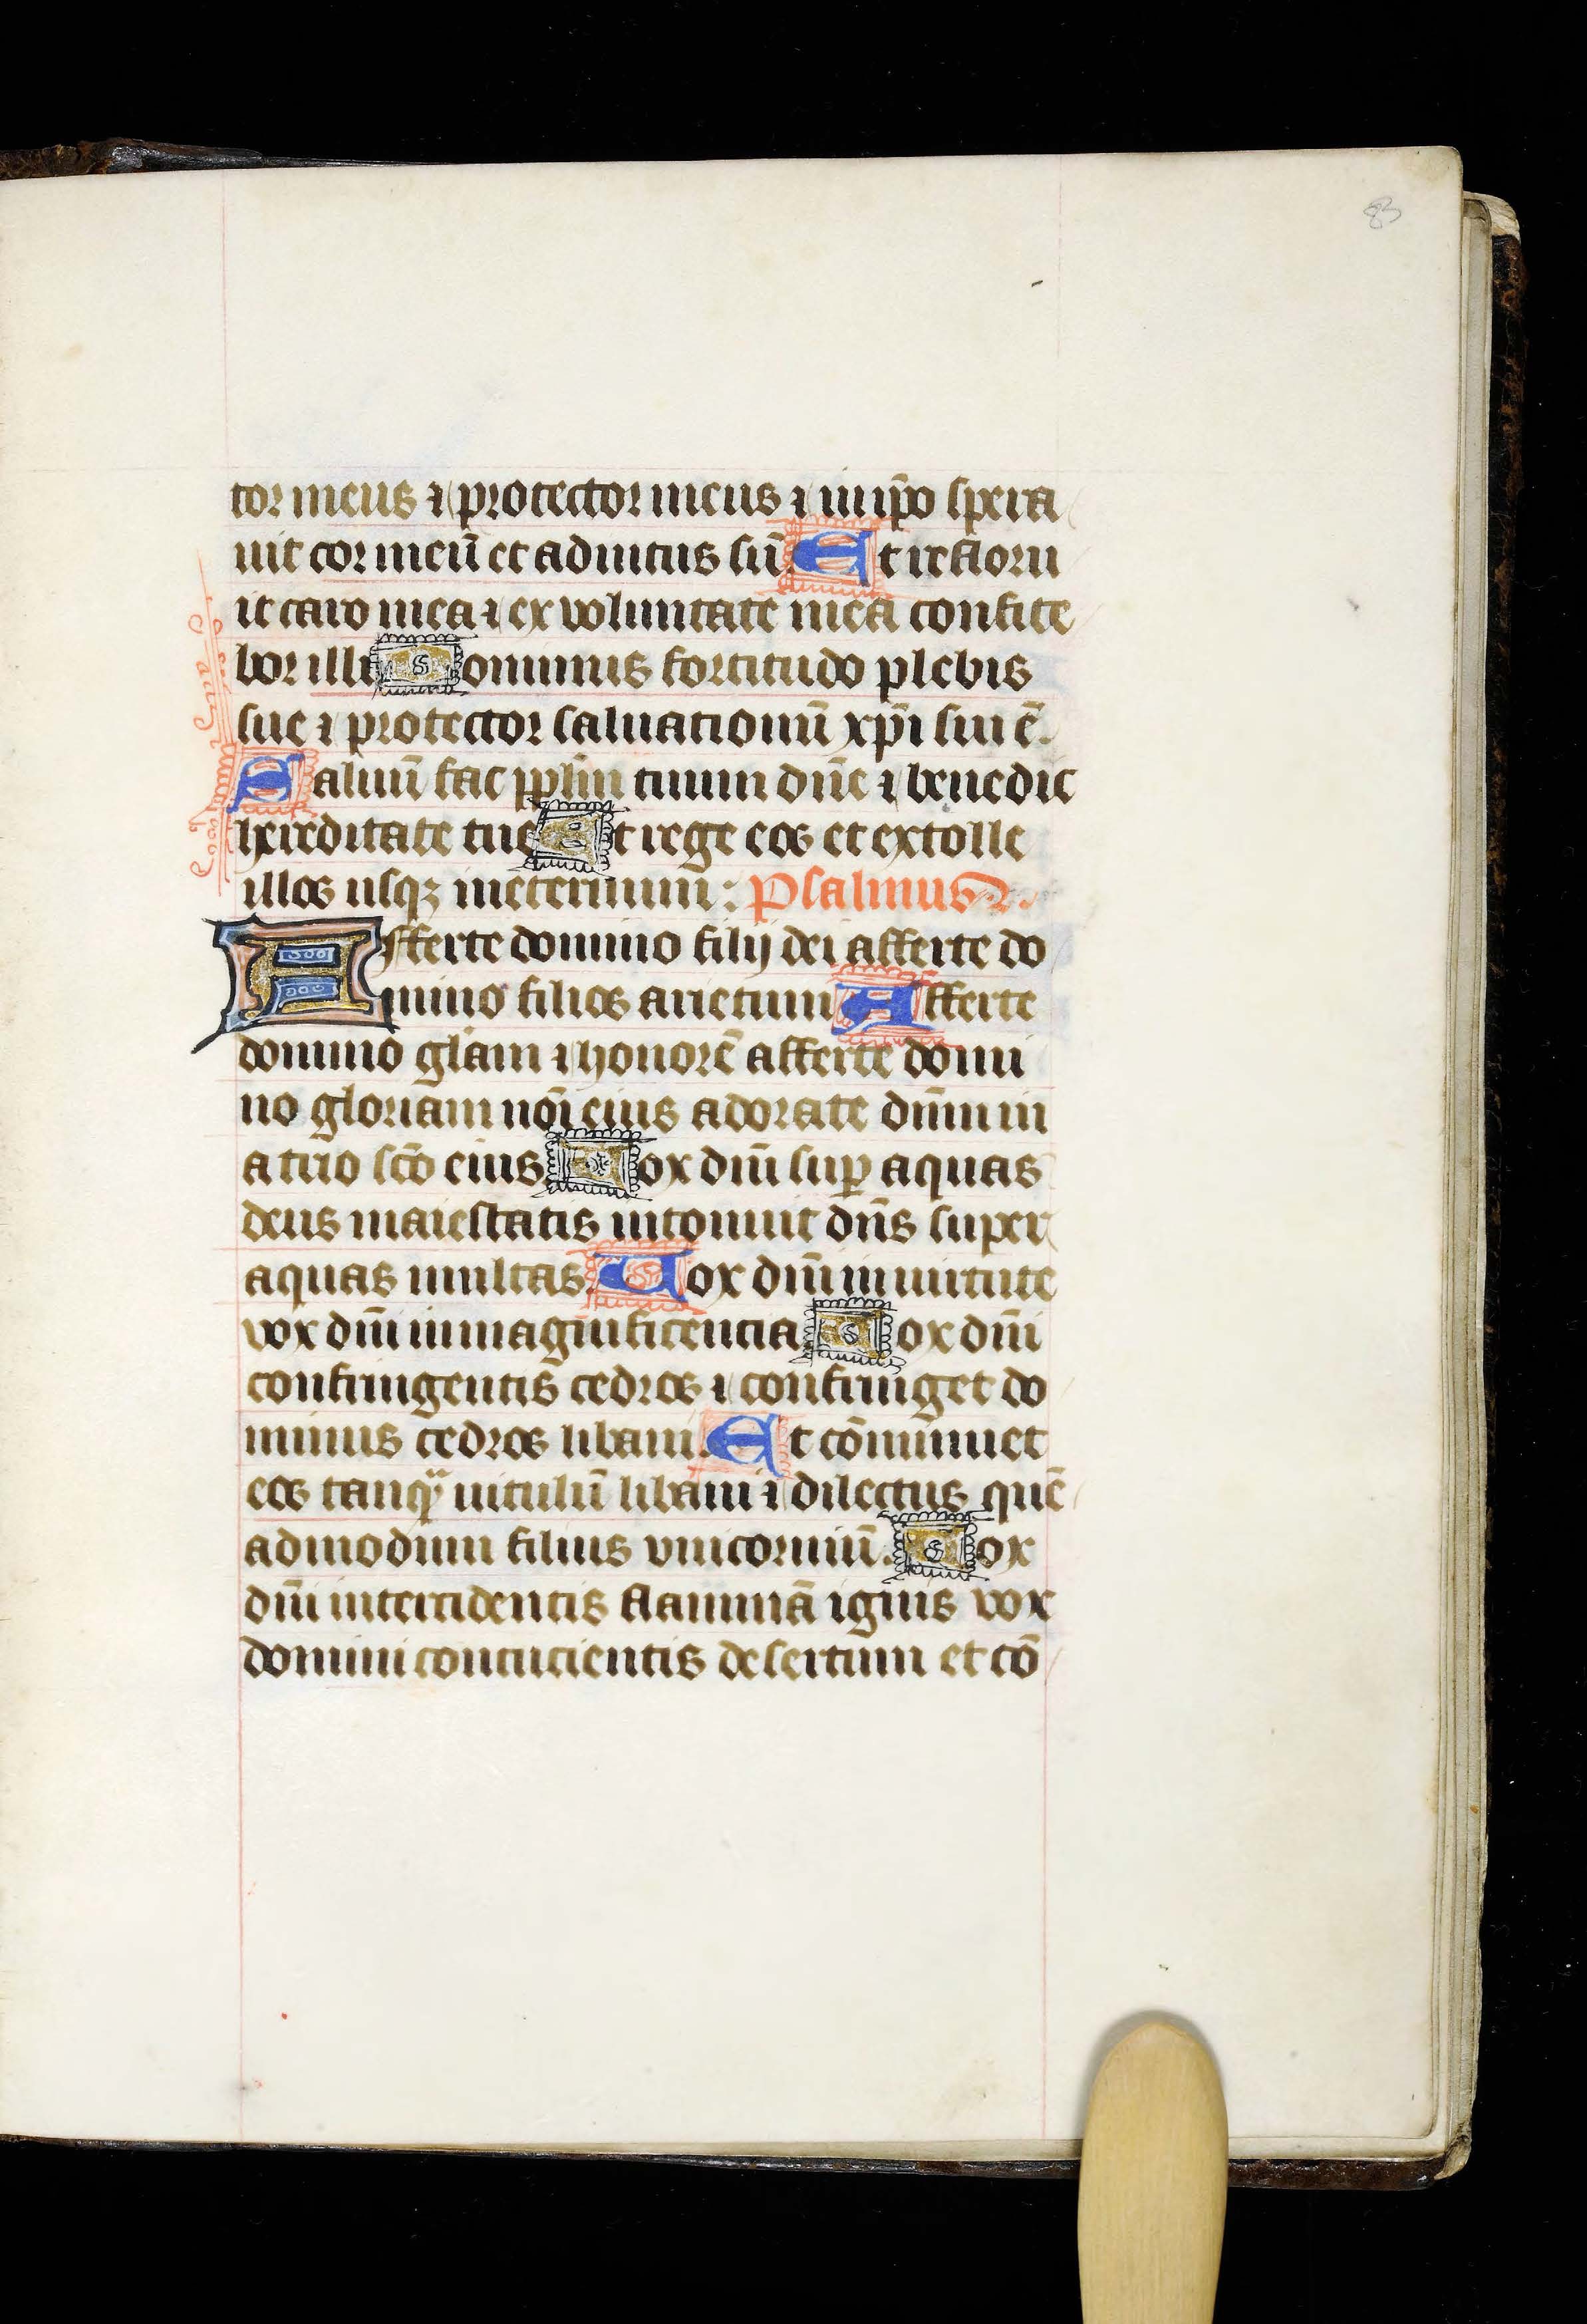 83
tor meus ⁊ protector meus ⁊ in ip̄o spera
uit cor meū et adiutus sū Et refloru
it caro mea ⁊ ex voluntate mea confite
bor illi Dominus fortitudo plebis
sue ⁊ protector saluationū xp̄i sui ē.
Saluū fac pplm̄ tuum dn̄e ⁊ benedic
hereditate tue Et rege eos et extolle
illos usqꝫ ineternum: Psalmus D.
Afferte domino filij dei afferte do
mino filios arietum Afferte
domino glām ⁊ honorē afferte domi
no gloriam nōi eius adorate dn̄m in
atrio scō eius Vox dn̄i suꝑ aquas
deus maiestatis intonuit dn̄s super
aquas multas. Vox dn̄i in uirtute
vox dn̄i in magnificentia Vox dn̄i
confringentis cedros ⁊ confringet do
minus cedros libani. Et cōminuet
eos tanqᷓ uitulū libani ⁊ dilectus quē
admodum filius vnicorniū. Vox
dn̄i intercidentis flammā ignis vox
domini concucientis desertum et cō